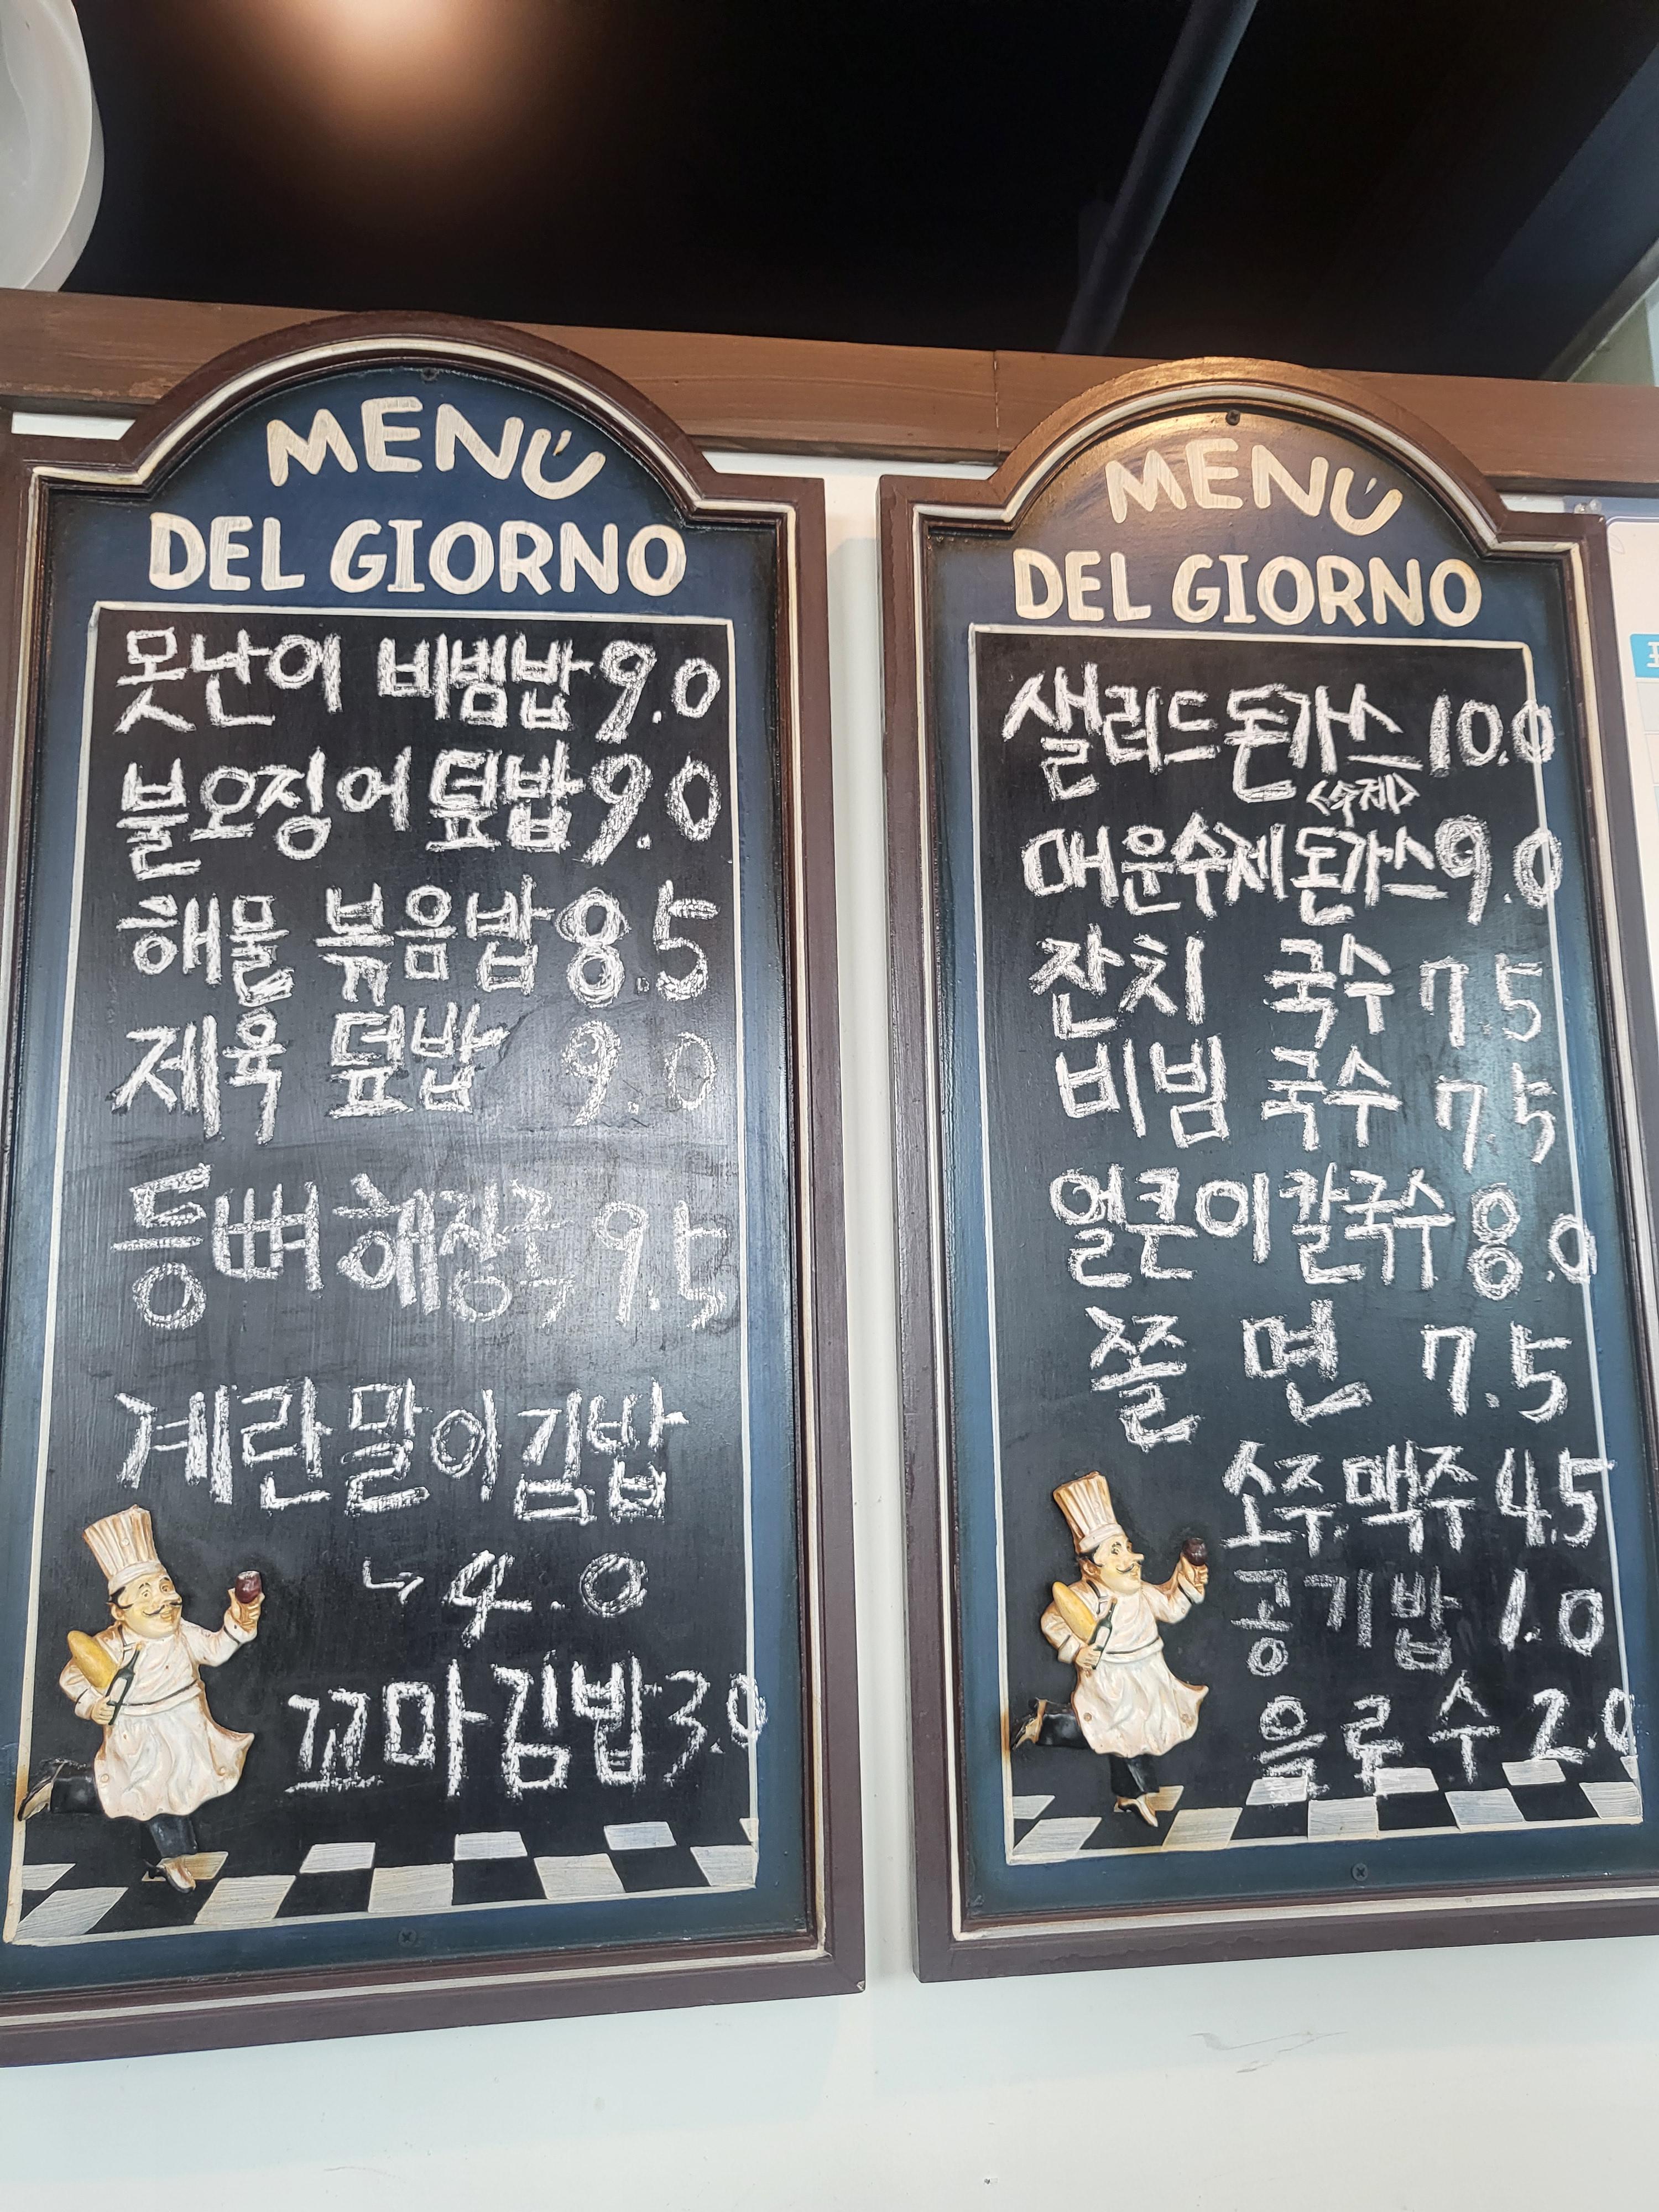 MENÙ
DEL GIORNO
못난이 비빔밥 9.0
불오징어 덮밥 9.0
해물 볶음밥 8.5
제육 덮밥 9.0
등뼈 해장국 9.5
계란말이김밥
↪ 4.0
꼬마김밥 3.0
MENÙ
DEL GIORNO
샐러드돈가스 10.0
<수제>
매운수제돈가스 9.0
잔치 국수 7.5
비빔 국수 7.5
얼큰이칼국수 8.0
쫄 면 7.5
소주.맥주 4.5
공기밥 1.0
음료수 2.0